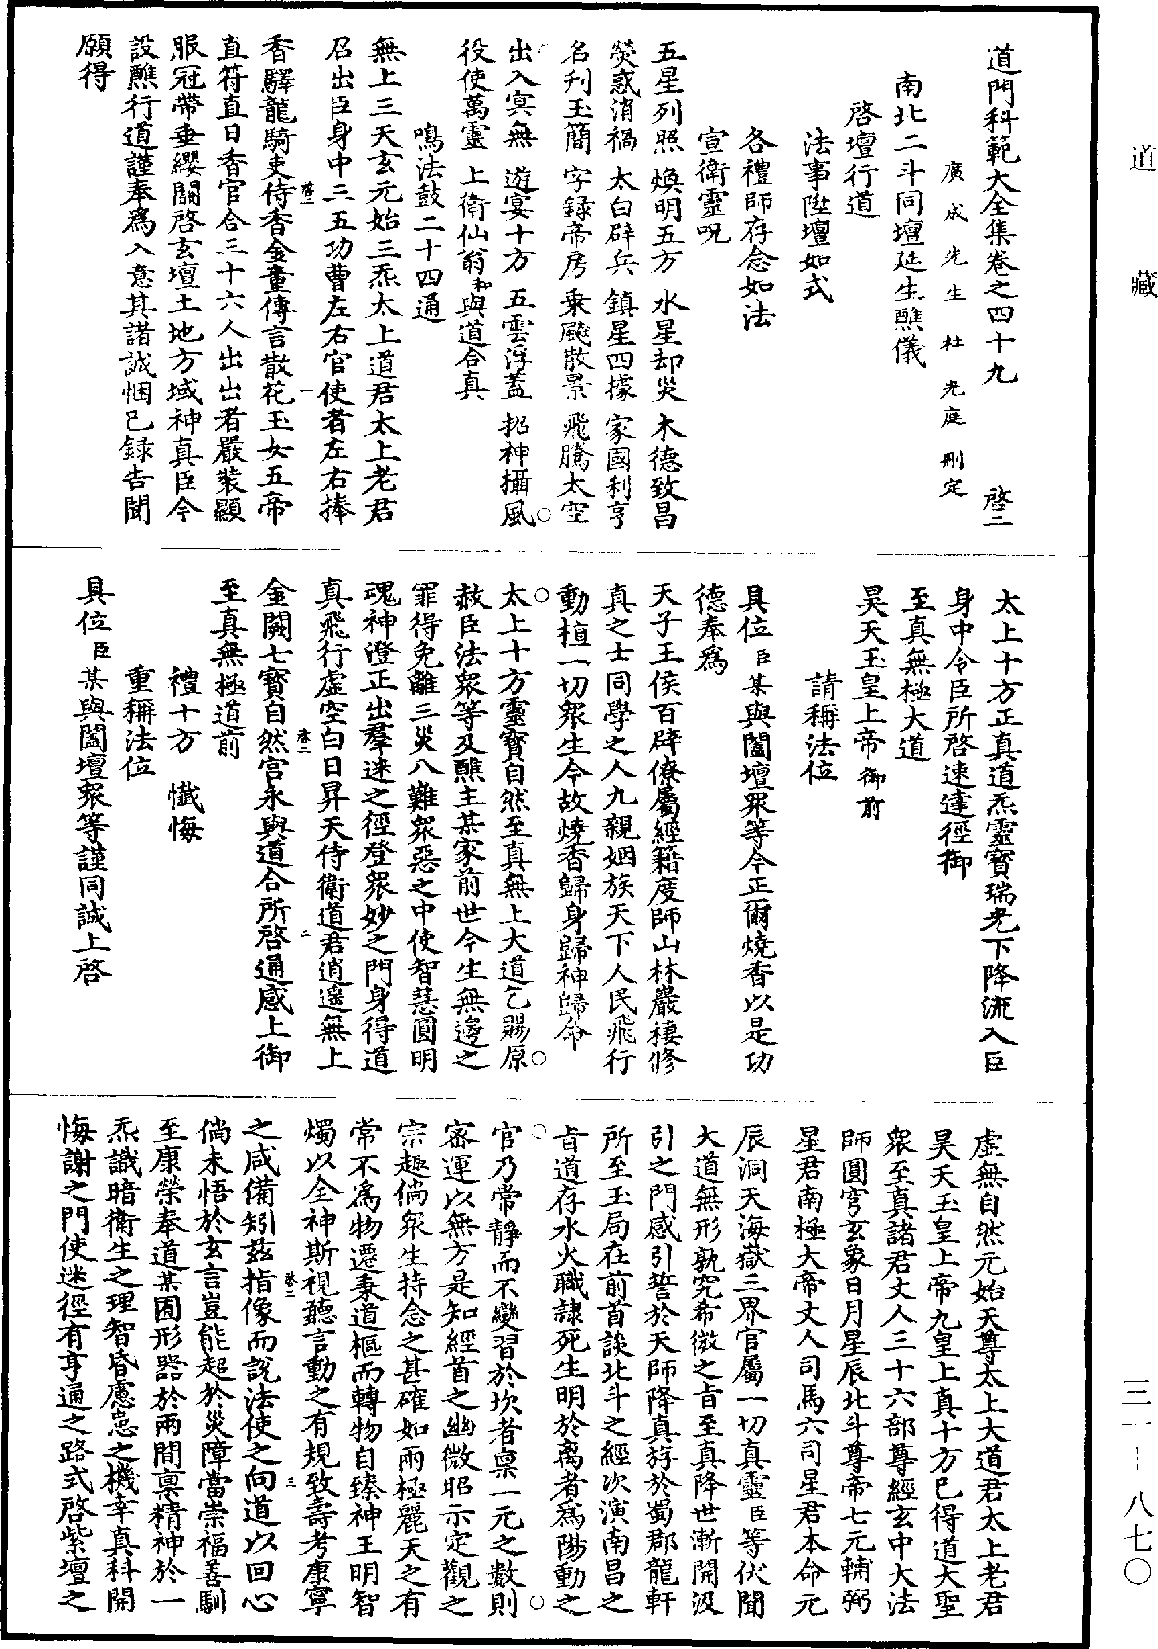 道藏
三一—八七〇
道門科範大全集卷之四十九 啓二
廣成先生杜光庭刪定
南北二斗同壇延生醮儀
啓壇行道
法事陞壇如式
各禮師存念如法
宣衛靈呪
五星列照 煥明五方 水星却災 木德致昌
熒惑消禍 太白辟兵 鎮星四據 家國利亨
名刋玉簡 字録帝房 乗飈散景 飛騰太空
出入㝠無 遊宴十方 五雲浮蓋 招神攝風
役使萬靈 上衛仙翁和與道合真
鳴法鼓二十四通
無上三天玄元始三炁太上道君太上老君
召出臣身中三五功曹左右官使者左右捧
香驛龍騎吏侍香金童傳言散花玉女五帝
直符直日香官合三十六人出出者嚴裝顯
服冠帶垂纓關啓玄壇土地方域神真臣今
設醮行道謹奉為入意其諸誠悃已録告聞
願得
太上十方正真道炁靈寶瑞光下降流入臣
身中令臣所啓速達徑御
至真無極大道
昊天玉皇上帝御前
請稱法位
具位臣某與闔壇衆等今正爾燒香以是功
德奉為
天子王侯百辟僚屬經籍度師山林巖棲修
真之士同學之人九親姻族天下人民飛行
動植一切衆生今故燒香歸身歸神歸命
太上十方靈寶自然至真無上大道乞賜原
赦臣法衆等及醮主某家前世今生無邊之
罪得免離三災八難衆惡之中使智慧圓明
魂神澄正出羣迷之徑登衆妙之門身得道
真飛行虛空白日昇天侍衛道君逍遥無上
金闕七寳自然宮永與道合所啓通感上御
至真無極道前
禮十方 懺悔
重稱法位
具位臣某與闔壇衆等謹同誠上啓
虛無自然元始天尊太上大道君太上老君
昊天玉皇上帝九皇上真十方已得道大聖
衆至真諸君丈人三十六部尊經玄中大法
師圓穹玄象日月星辰北斗尊帝七元輔弼
星君南極大帝丈人司馬六司星君本命元
辰洞天海嶽三界官屬一切真靈臣等伏聞
大道無形孰究希微之旨至真降世漸開汲
引之門感引誓於天師降真斿於蜀郡龍軒
所至玉局在前首談北斗之經次演南昌之
旨道存水火職隷死生明於离者為陽動之
官乃常靜而不變習於坎者稟一元之數則
審運以無方是知經首之幽微昭示定觀之
宗趣倘衆生持念之甚確如兩極麗天之有
常不為物遷秉道樞而轉物自臻神王明智
燭以全神斯視聽言動之有規致壽考康寧
之咸備矧茲指像而說法使之向道以回心
倘未悟於玄言豈能超於災障當崇福善馴
至康榮奉道某囿形器於兩間稟精神於一
炁識暗衛生之理智昏慮患之機幸真科開
悔謝之門使迷徑有亨通之路式啓紫壇之